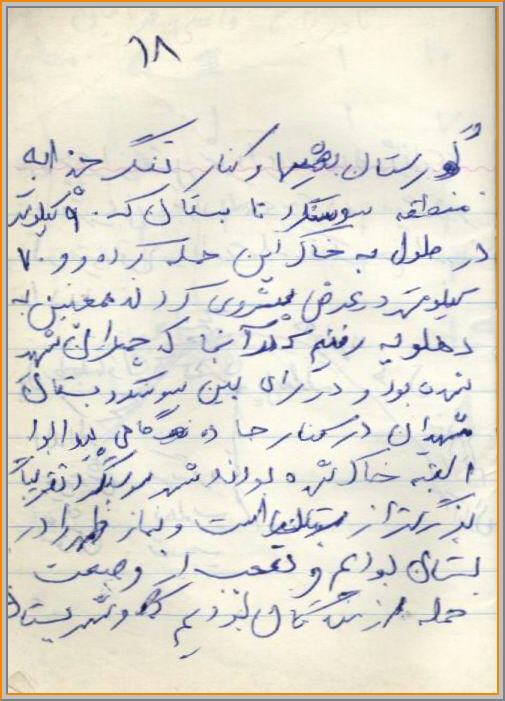 ۱۸
گورستان بعثیها و کنار تنگ چزابه
منطقه سوسنگرد تا بستان که ۹۰ کیلومتر
در طول به خاک این حمله کرده و ۷۰
کیلومتر در عرض پیشروی کردند همچنین به
دهلویه رفتیم که آنجا که چمران شهید
شده بود و در راه بین سوسنگرد بستان
شهیدان در کنار جاده
البته خاک شده بودند و شهر سوسنگرد تقریباً
بزرگتر از بستان است و نماز ظهر را در
بستان بودیم و تعجب از وضعیت
حمله کردیم که شهر بستان